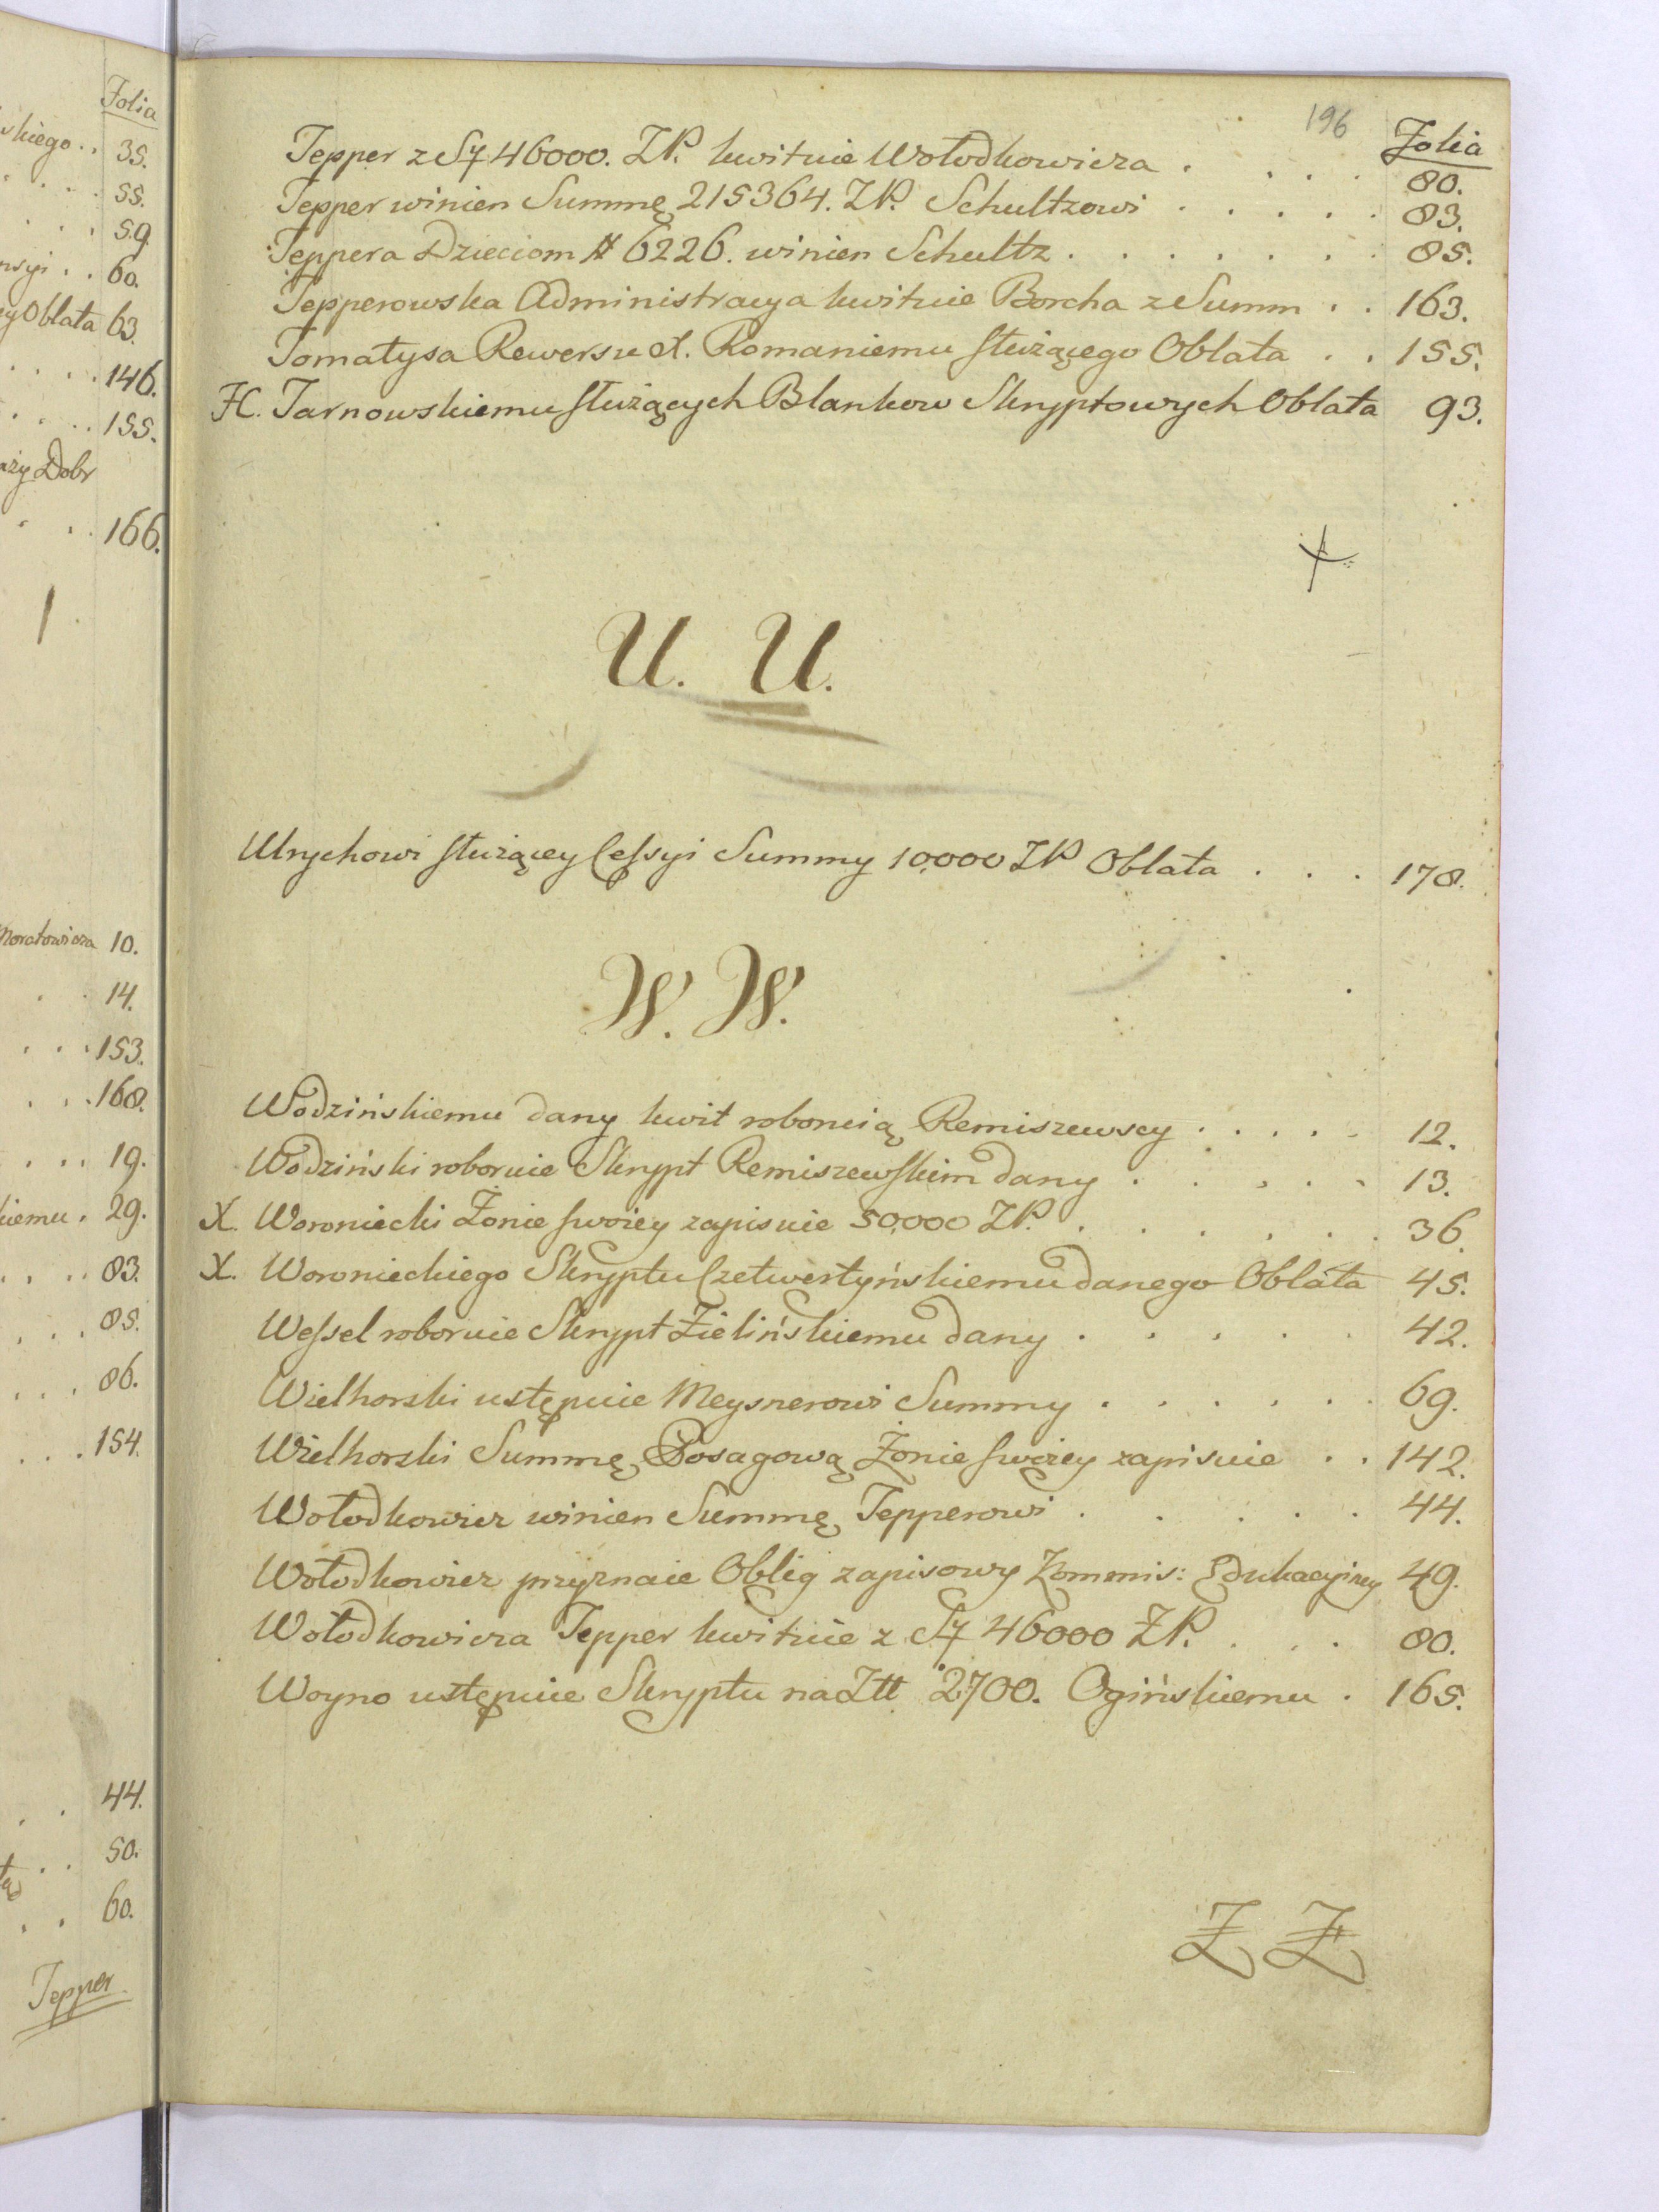 Folia
skiego . . 35.
55.
59.
nsyi . . 60.
Oblata 63.
146.
155.
Dobr
166.
Moratowicza 10.
14.
153.
168.
19.
kiemu . 29.
83.
85.
86.
154.
44.
50.
60.
Tepper
196
Folia
Tepper z Sy 46000. ZP. kwituie Wołodkowicza . . . . 80.
Tepper winien Summę 215364. ZP. Schultzowi . . . . . 83.
Teppera Dzieciom # 6226. winien Schultz . . . . . . . 85.
Tepperowska Administracya kwituie Borcha z Summ . . 163.
Tomatysa Rewersu Romaniemu służącego Oblata . . 155.
Tarnowskiemu służących Blankow Skryptowych Oblata 93.
U. U.
Ulrychowi służącey Cessyi Summy 10,000 ZP Oblata . . . 178.
W. W.
Wodzińskiemu dany kwit roboruią Remiszewscy . . . . . 12.
Wodziński roboruie Skrypt Remiszewskim dany . . . . . 13.
X. Woroniecki Żonie swoiey zapisuie 50,000 ZP. . . . . . . 36.
X. Woronieckiego Skryptu Czetwertyńskiemu danego Oblata 45.
Wessel roboruie Skrypt Zielińskiemu dany . . . . . 42.
Wielhorski ustępuie Meysnerowi Summy . . . . . . 69.
Wielhorski Summę Posagową Żonie swoiey zapisuie . . 142.
Wołodkowicz winien Summę Tepperowi . . . . . 44.
Wołodkowicz przyznaie Oblig zapisowy Kommis: Edukacyiney 49.
Wołodkowicza Tepper kwituie z Sy 46000 ZP. . . . 80.
Woyno ustępuie Skryptu na Ztt 2700. Ogińskiemu . 165.
Z Z